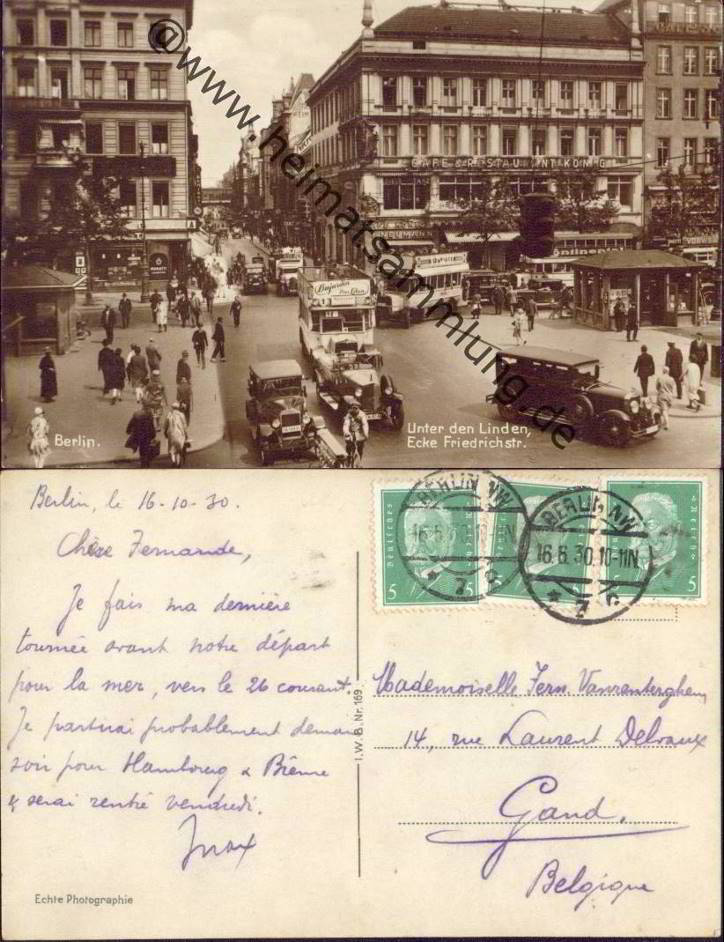 @www.heimatsammlung.de
CAFE & RESTAURANT KÖNIG
Berlin.
Unter den Linden,
Ecke Friedrichstr.
Berlin, le 16-10-30.
Chère Fernande,
Je fais ma dernière
tournée avant notre départ
pour la mer, vers le 26 courant.
Je partirai probablement demain
soir pour Hambourg &
& serai rentré vendredi.
Echte Photographie
I.W.B. Nr. 169
BERLIN NW
16.6.30.10-11N.
* 7
BERLIN NW
16.6.30.10-11N.
* 7
Deutsches Reich
5 5
Mademoiselle Fern. Vanrenterghem
14, rue Laurent Delvaux
Gand.
Belgique